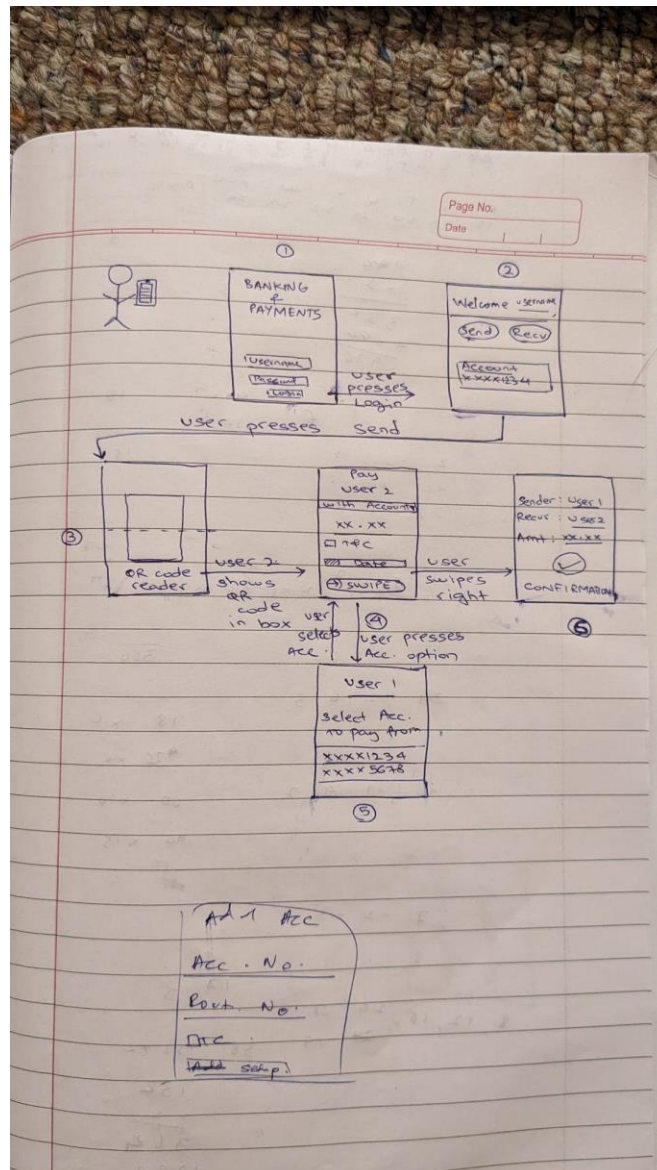 Page No.
Date
①
②
BANKING
&
PAYMENTS
Username
Password
Login
user
presses
Login
Welcome username
Send Recv
Account
xxxx1234
user presses send
③
QR code
reader
user 2
shows
QR
code
in box
Pay
User 2
with Accounts
xx.xx
T&C
Date
SWIPE
user
swipes
right
Sender: User 1
Recvr: User2
Amt: xx.xx
CONFIRMATION
⑥
user
selects
Acc.
④
user presses
Acc. option
User 1
Select Acc.
to pay from
xxxx1234
xxxx5678
⑤
Add Acc
Acc. No.
Rout. No.